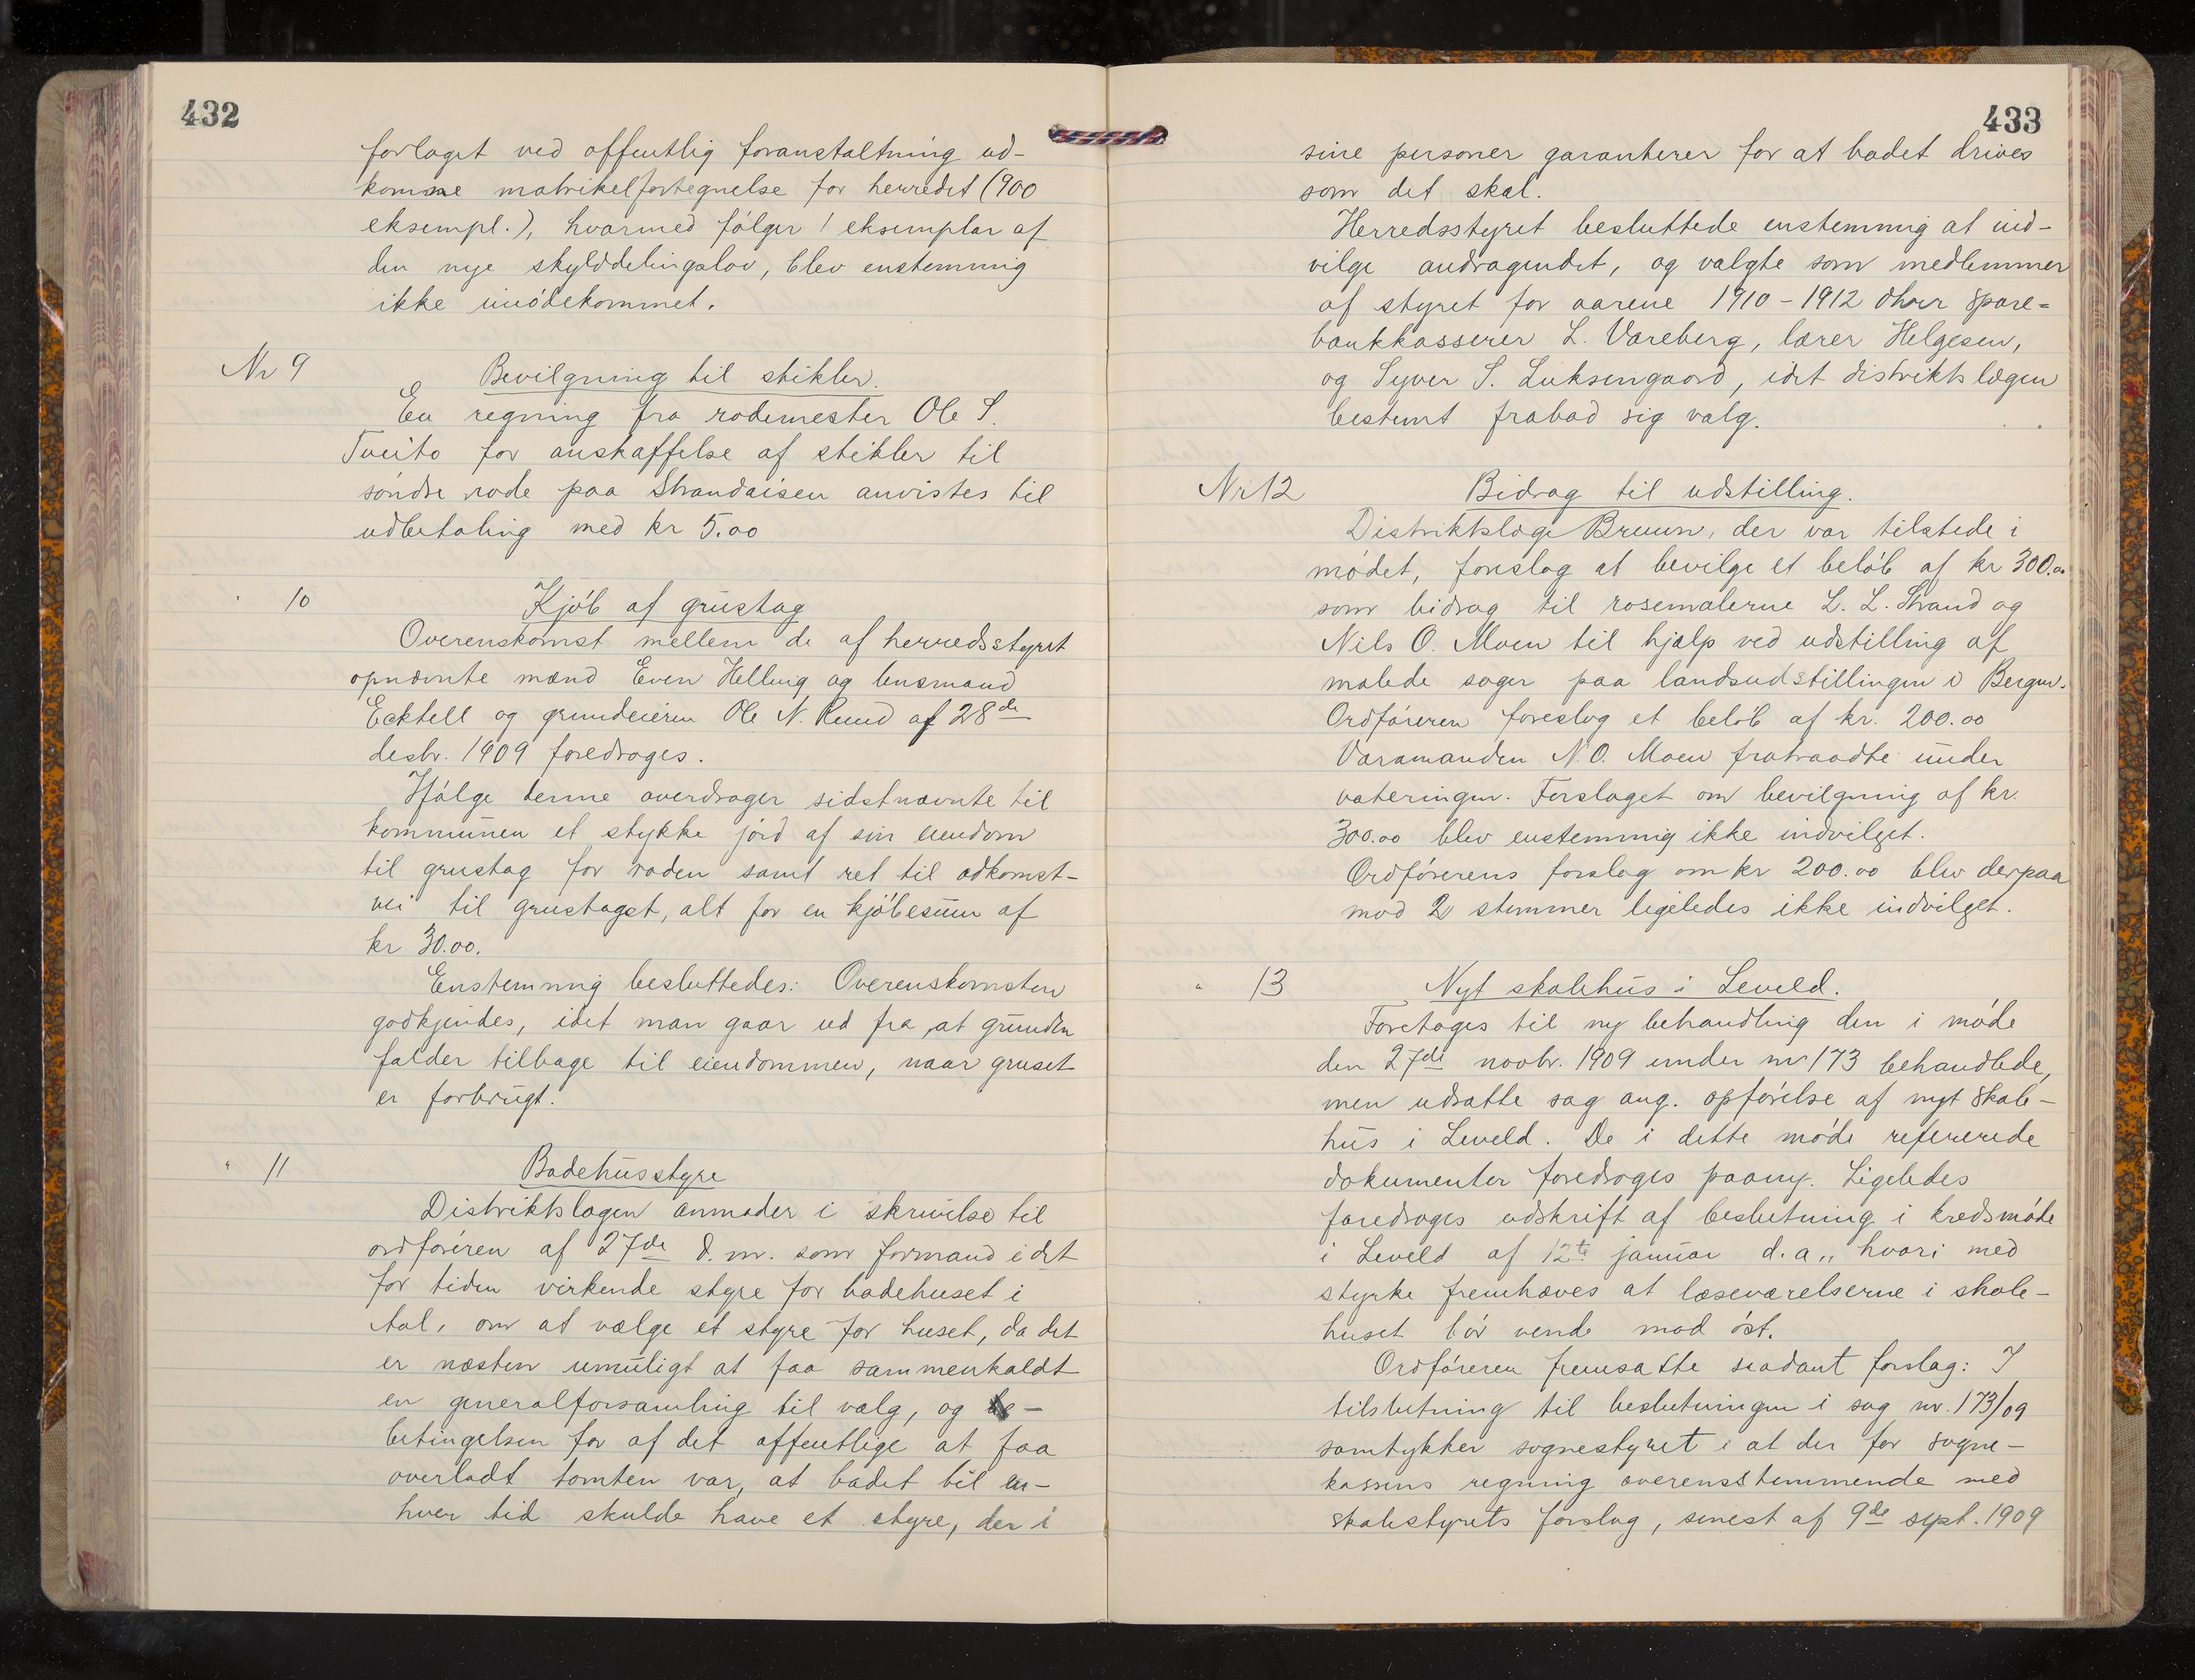 432
forlaget ved offentlig foranstaltning ud-
komne matrikelfortegnelse for herredet (900
eksempl.), hvormed følger 1 eksemplar af
den nye skylddelingslov, blev enstemmig
ikke imødekommet.
Nr 9
Bevilgning til stikler.
En regning fra rodemester Ole S.
Tveito for anskaffelse af stikler til
søndre rode paa Strandaisen anvistes til
udbetaling med kr 5.00
" 10
Kjøb af grustag
Overenskomst mellem de af herredsstyret
opnævnte mænd Even Helling og lensmand
Ecktell og grundeieren Ole N. Ruud af 28de
desbr. 1909 foredroges.
Ifølge denne overdrager sidstnævnte til
kommunen et stykke jord af sin eiendom
til grustag for roden samt ret til adkomst-
vei til grustaget, alt for en kjøbesum af
kr 30.00.
Enstemmig besluttedes: Overenskomsten
godkjendes, idet man gaar ud fra, at grunden
falder tilbage til eiendommen, naar gruset
er forbrugt.
" 11
Badehusstyre
Distriktslægen anmoder i skrivelse til
ordføreren af 27de d. m. som formand i det
for tiden virkende styre for badehuset i
Aal, om at vælge et styre for huset, da det
er næsten umuligt at faa sammenkaldt
en generalforsamling til valg, og
betingelsen for af det offentlige at faa
overladt tomten var, at badet til en-
hver tid skulde have et styre, der i
433
sine personer garanterer for at badet drives
som det skal.
Herredsstyret besluttede enstemmig at ind-
vilge andragendet, og valgte som medlemmer
af styret for aarene 1910 - 1912 dhrr spare=
bankkasserer L. Vareberg, lærer Helgesen,
og Syver S. Luksengaard, idet distriktslægen
bestemt frabad sig valg.
Nr 12
Bidrag til udstilling.
Distriktslæge Bruun, der var tilstede i
mødet, foreslog at bevilge et beløb af kr 300.00
som bidrag til rosemalerne L. L. Strand og
Nils O. Moen til hjælp ved udstilling af
malede sager paa landsudstillingen i Bergen.
Ordføreren foreslog et beløb af kr. 200.00
Varamanden N. O. Moen fratraadte under
voteringen. Forslaget om bevilgning af kr.
300.00 blev enstemmig ikke indvilget.
Ordførerens forslag om kr 200.00 blev derpaa
mod 2 stemmer ligeledes ikke indvilget.
" 13
Nyt skolehus i Leveld.
Foretoges til ny behandling den i møde
den 27de novbr. 1909 under nr 173 behandlede,
men udsatte sag ang. opførelse af nyt skole-
hus i Leveld. De i dette møde refererede
dokumenter foredroges paany. Ligeledes
foredroges udskrift af beslutning i kredsmøde
i Leveld af 12te januar d. a., hvori med
styrke fremhæves at læseværelserne i skole-
huset bør vende mod øst.
Ordføreren fremsatte saadant forslag: I
tilslutning til beslutningen i sag nr. 173/09
samtykker sognestyret i at der for sogne-
kassens regning overensstemmende med
skolestyrets forslag, senest af 9de sept. 1909